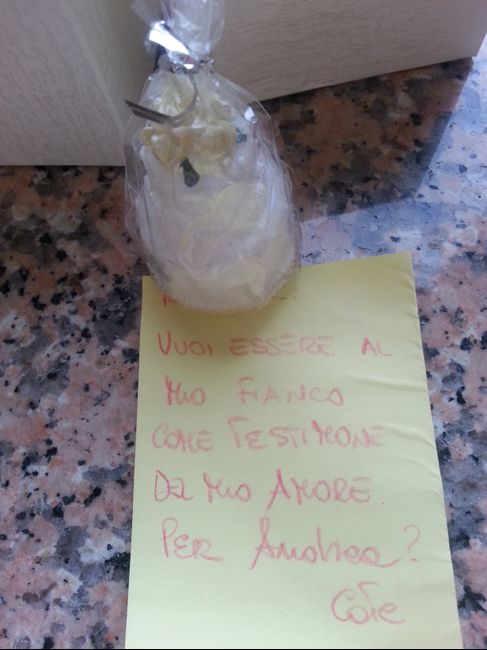 VUOI ESSERE AL
MIO FIANCO
COME TESTIMONE
DEL MIO AMORE
PER Andrea?